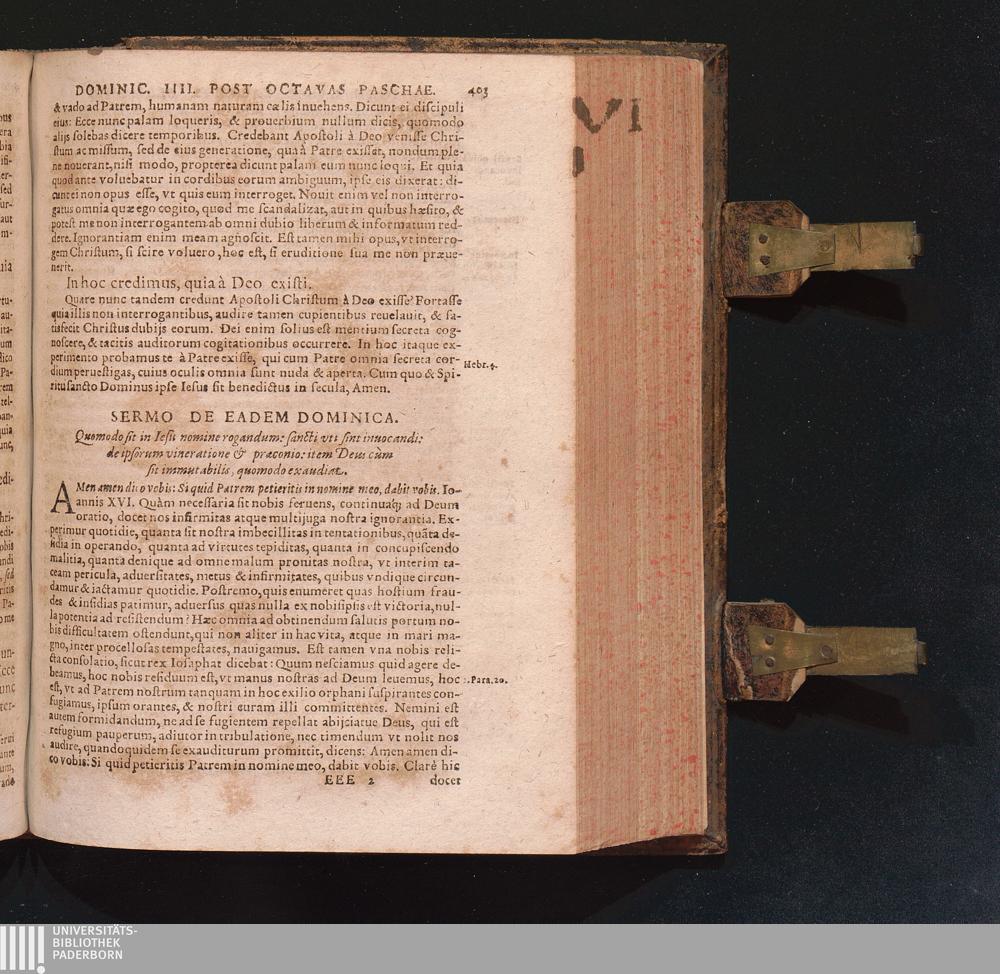 DOMINIC. IIII. POST OCTAVAS PASCHAE. 403
& vado ad Patrem, humanam naturam cælis inuehens. Dicunt ei discipuli
eius: Ecce nunc palam loqueris, & prouerbium nullum dicis, quomodo
alijs solebas dicere temporibus. Credebant Apostoli à Deo venisse Chri-
stum ac missum, sed de eius generatione, qua à Patre exisset, nondum ple-
ne nouerant, nisi modo, propterea dicunt palam eum nunc loqui. Et quia
quod ante voluebatur in cordibus eorum ambiguum, ipse eis dixerat: di-
cunt ei non opus esse, vt quis eum interroget. Nouit enim vel non interro-
gatus omnia quæ ego cogito, quod me scandalizat, aut in quibus hæsito, &
potest me non interrogantem ab omni dubio liberum & informatum red-
dere. Ignorantiam enim meam agnoscit. Est tamen mihi opus, vt interro-
gem Christum, si scire voluero, hoc est, si eruditione sua me non præue-
nerit.
In hoc credimus, quia à Deo existi.
Quare nunc tandem credunt Apostoli Christum à Deo exisse? Fortasse
quia illis non interrogantibus, audire tamen cupientibus reuelauit, & sa-
tisfecit Christus dubijs eorum. Dei enim solius est mentium secreta cog-
noscere, & tacitis auditorum cogitationibus occurrere. In hoc itaque ex-
perimento probamus te à Patre exisse, qui cum Patre omnia secreta cor-
dium peruestigas, cuius oculis omnia sunt nuda & aperta. Cum quo & Spi-
ritu sancto Dominus ipse Iesus sit benedictus in secula, Amen.
Hebr. 4.
SERMO DE EADEM DOMINICA.
Quomodo sit in Iesu nomine rogandum: sancti vti sint inuocandi:
de ipsorum vineratione & præconio: item Deus cùm
sit immutabilis, quomodo exaudiat.
AMen amen dico vobis: Si quid Patrem petieritis in nomine meo, dabit vobis. Io-
annis XVI. Quàm necessaria sit nobis feruens, continuaq́; ad Deum
oratio, docet nos infirmitas atque multijuga nostra ignorantia. Ex-
perimur quotidie, quanta sit nostra imbecillitas in tentationibus, quãta de-
sidia in operando, quanta ad virtutes tepiditas, quanta in concupiscendo
malitia, quanta denique ad omne malum pronitas nostra, vt interim ta-
ceam pericula, aduersitates, metus & infirmitates, quibus vndique circun-
damur & iactamur quotidie. Postremo, quis enumeret quas hostium frau-
des & insidias patimur, aduersus quas nulla ex nobisipsis est victoria, nul-
la potentia ad resistendum? Hæc omnia ad obtinendum salutis portum no-
bis difficultatem ostendunt, qui non aliter in hac vita, atque in mari ma-
gno, inter procellosas tempestates, nauigamus. Est tamen vna nobis reli-
cta consolatio, sicut rex Iosaphat dicebat: Quum nesciamus quid agere de-
beamus, hoc nobis residuum est, vt manus nostras ad Deum leuemus, hoc
2. Para. 20.
est, vt ad Patrem nostrum tanquam in hoc exilio orphani suspirantes con-
fugiamus, ipsum orantes, & nostri curam illi committentes. Nemini est
autem formidandum, ne ad se fugientem repellat abijciatue Deus, qui est
refugium pauperum, adiutor in tribulatione, nec timendum vt nolit nos
audire, quandoquidem se exauditurum promittit, dicens: Amen amen di-
co vobis: Si quid petieritis Patrem in nomine meo, dabit vobis. Clarè hic
EEE 2 docet
VI
UNIVERSITÄTS-
BIBLIOTHEK
PADERBORN